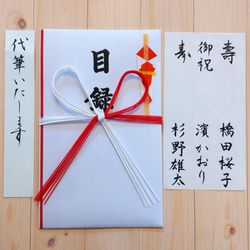 壽
御祝
寿
橋田桜子
濱かおり
杉野雄太
目録
代筆いたします